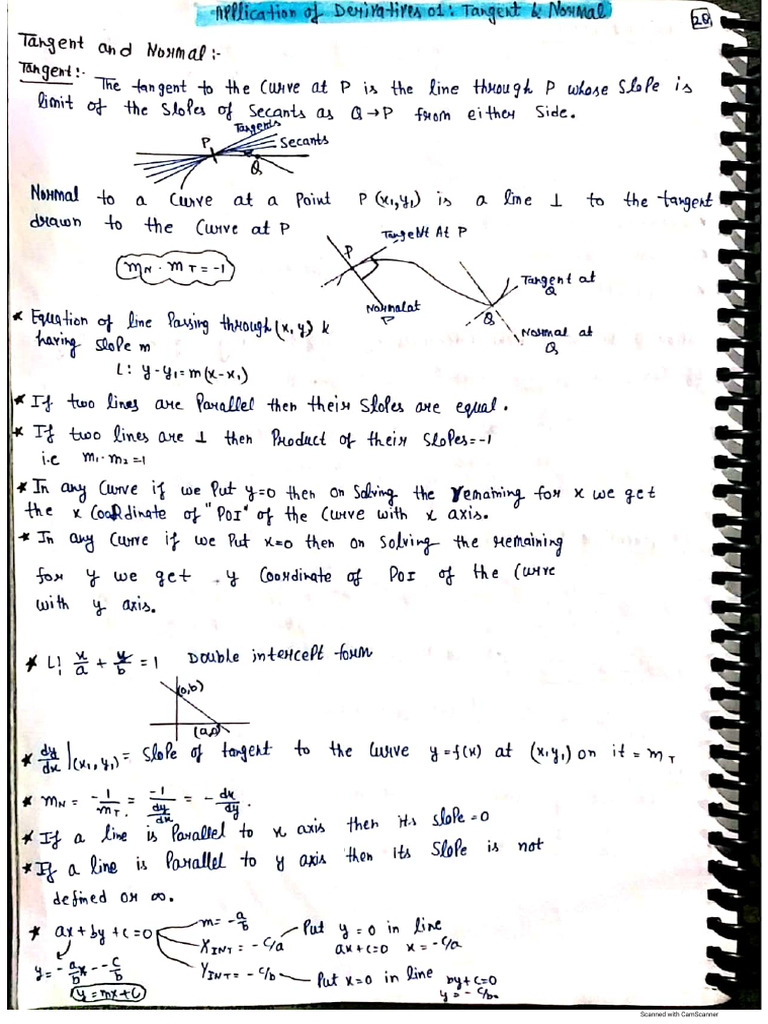 Application of Derivatives 01: Tangent & Normal
28
Tangent and Normal:-
Tangent:- The tangent to the curve at P is the line through P whose slope is
limit of the slopes of secants as Q→P from either side.
Tangents
P
Secants
Q
Normal to a curve at a point P(x1,y1) is a line ⊥ to the tangent
drawn to the curve at P
Tangent At P
P
mN · mT = -1
Tangent at
Q
Normal at
P
Q
Normal at
Q
* Equation of line passing through (x, y) &
having slope m
L: y-y1=m(x-x1)
* If two lines are parallel then their slopes are equal.
* If two lines are ⊥ then product of their slopes=-1
i.e m1·m2=-1
* In any curve if we put y=0 then on solving the remaining for x we get
the x coordinate of "POI" of the curve with x axis.
* In any curve if we put x=0 then on solving the remaining
for y we get y coordinate of POI of the curve
with y axis.
* L: x/a + y/b = 1 Double intercept form
(0,b)
(a,0)
* dy/dx|(x1,y1) = slope of tangent to the curve y=f(x) at (x1y1) on it = mT
* mN = -1/mT = -1/(dy/dx) = -dx/dy.
* If a line is parallel to x axis then its slope=0
* If a line is parallel to y axis then its slope is not
defined or ∞.
* ax+by+c=0
m=-a/b
XINT = -c/a
Put y=0 in line
ax+c=0 x=-c/a
YINT = -c/b
Put x=0 in line
by+c=0
y=-c/b.
y=-a/b x--c/b
y=mx+c
Scanned with CamScanner